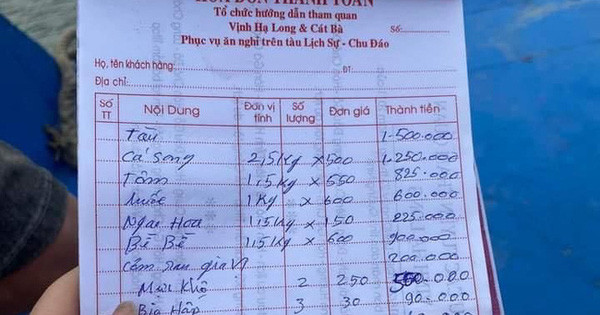 HÓA ĐƠN THANH TOÁN
Tổ chức hướng dẫn tham quan
Vịnh Hạ Long & Cát Bà Số:
Phục vụ ăn nghỉ trên tàu Lịch Sự - Chu Đáo
Họ, tên khách hàng: ĐT:
Địa chỉ:
Số TT Nội Dung Đơn vị tính Số lượng Đơn giá Thành tiền
Tàu 1.500.000
Cá Song 2,5 Kg x 500 1.250.000
Tôm 1,5 Kg x 550 825.000
1 Kg x 600 600.000
Ngao Hoa 1,5 Kg x 150 225.000
Bề Bề 1,5 Kg x 600 900.000
Cơm rau gia vị 200.000
Mực Khô 2 250 000
Bia Hấp 3 30 90.000